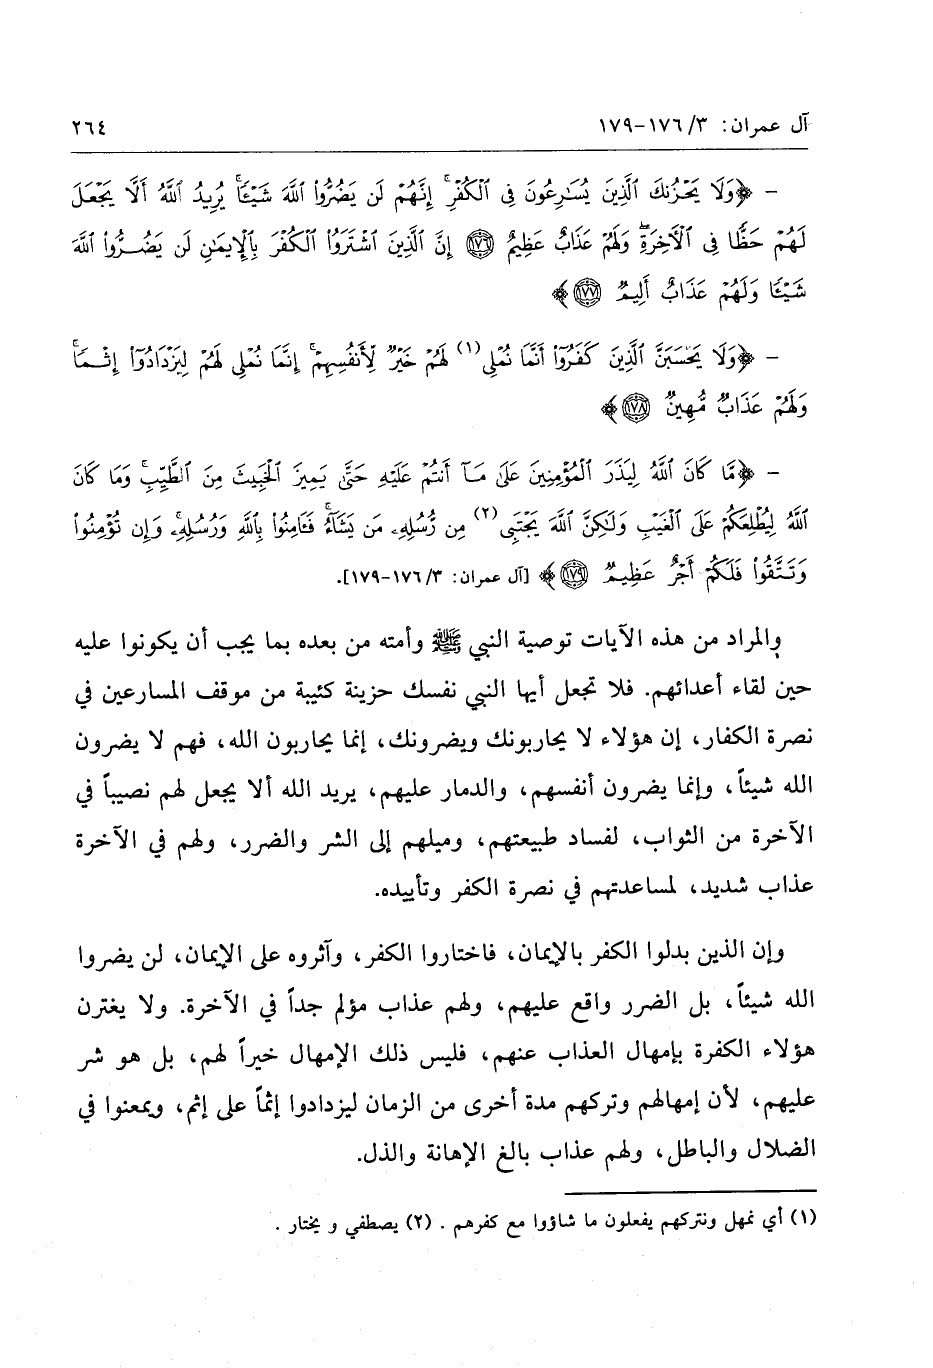 آل عمران: ٣/ ١٧٦-١٧٩
٢٦٤
- ﴿وَلَا يَحْزُنكَ ٱلَّذِينَ يُسَٰرِعُونَ فِى ٱلْكُفْرِ ۚ إِنَّهُمْ لَن يَضُرُّوا۟ ٱللَّهَ شَيْـًٔا ۗ يُرِيدُ ٱللَّهُ أَلَّا يَجْعَلَ
لَهُمْ حَظًّا فِى ٱلْـَٔاخِرَةِ ۖ وَلَهُمْ عَذَابٌ عَظِيمٌ ١٧٦ إِنَّ ٱلَّذِينَ ٱشْتَرَوُا۟ ٱلْكُفْرَ بِٱلْإِيمَٰنِ لَن يَضُرُّوا۟ ٱللَّهَ
شَيْـًٔا وَلَهُمْ عَذَابٌ أَلِيمٌ ١٧٧﴾
- ﴿وَلَا يَحْسَبَنَّ ٱلَّذِينَ كَفَرُوٓا۟ أَنَّمَا نُمْلِى(١) لَهُمْ خَيْرٌ لِّأَنفُسِهِمْ ۚ إِنَّمَا نُمْلِى لَهُمْ لِيَزْدَادُوٓا۟ إِثْمًا ۚ
وَلَهُمْ عَذَابٌ مُّهِينٌ ١٧٨﴾
- ﴿مَّا كَانَ ٱللَّهُ لِيَذَرَ ٱلْمُؤْمِنِينَ عَلَىٰ مَآ أَنتُمْ عَلَيْهِ حَتَّىٰ يَمِيزَ ٱلْخَبِيثَ مِنَ ٱلطَّيِّبِ ۗ وَمَا كَانَ
ٱللَّهُ لِيُطْلِعَكُمْ عَلَى ٱلْغَيْبِ وَلَٰكِنَّ ٱللَّهَ يَجْتَبِى(٢) مِن رُّسُلِهِۦ مَن يَشَآءُ ۖ فَـَٔامِنُوا۟ بِٱللَّهِ وَرُسُلِهِۦ ۚ وَإِن تُؤْمِنُوا۟
وَتَتَّقُوا۟ فَلَكُمْ أَجْرٌ عَظِيمٌ ١٧٩﴾ [آل عمران: ٣/ ١٧٦-١٧٩].
والمراد من هذه الآيات توصية النبي ﷺ وأمته من بعده بما يجب أن يكونوا عليه
حين لقاء أعدائهم. فلا تجعل أيها النبي نفسك حزينة كئيبة من موقف المسارعين في
نصرة الكفار، إن هؤلاء لا يحاربونك ويضرونك، إنما يحاربون الله، فهم لا يضرون
الله شيئاً، وإنما يضرون أنفسهم، والدمار عليهم، يريد الله ألا يجعل لهم نصيباً في
الآخرة من الثواب، لفساد طبيعتهم، وميلهم إلى الشر والضرر، ولهم في الآخرة
عذاب شديد، لمساعدتهم في نصرة الكفر وتأييده.
وإن الذين بدلوا الكفر بالإيمان، فاختاروا الكفر، وآثروه على الإيمان، لن يضروا
الله شيئاً، بل الضرر واقع عليهم، ولهم عذاب مؤلم جداً في الآخرة. ولا يغترن
هؤلاء الكفرة بإمهال العذاب عنهم، فليس ذلك الإمهال خيراً لهم، بل هو شر
عليهم، لأن إمهالهم وتركهم مدة أخرى من الزمان ليزدادوا إثماً على إثم، ويمعنوا في
الضلال والباطل، ولهم عذاب بالغ الإهانة والذل.
(١) أي نمهل ونتركهم يفعلون ما شاؤوا مع كفرهم . (٢) يصطفي و يختار .